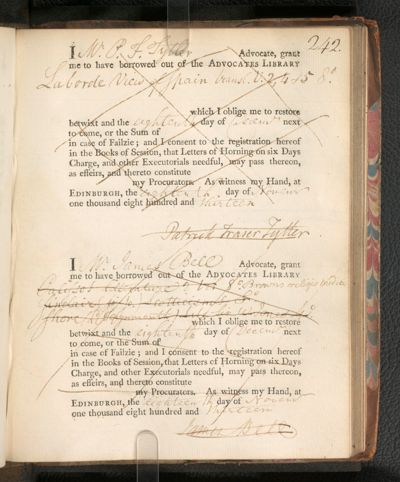 242.
I Mr P. F. Tytler Advocate, grant
me to have borrowed out of the ADVOCATES LIBRARY
Laborde View of Spain transl. V. 2, 4 & 5 8o
which I oblige me to restore
betwixt and the eighteenth day of Decemr next
to come, or the Sum of
in case of Failzie; and I consent to the registration hereof
in the Books of Session, that Letters of Horning on six Days
Charge, and other Executorials needful, may pass thereon,
as effeirs, and thereto constitute
my Procurators. As witness my Hand, at
EDINBURGH, the eighteenth day of Novemr
one thousand eight hundred and thirteen
Patrick Fraser Tytler
I Mr James Bell Advocate, grant
me to have borrowed out of the ADVOCATES LIBRARY
8o Browns
which I oblige me to restore
betwixt and the eighteenth day of Decemr next
to come, or the Sum of
in case of Failzie; and I consent to the registration hereof
in the Books of Session, that Letters of Horning on six Days
Charge, and other Executorials needful, may pass thereon,
as effeirs, and thereto constitute
my Procurators. As witness my Hand, at
EDINBURGH, the eighteenth day of Novemr
one thousand eight hundred and thirteen
James Bell